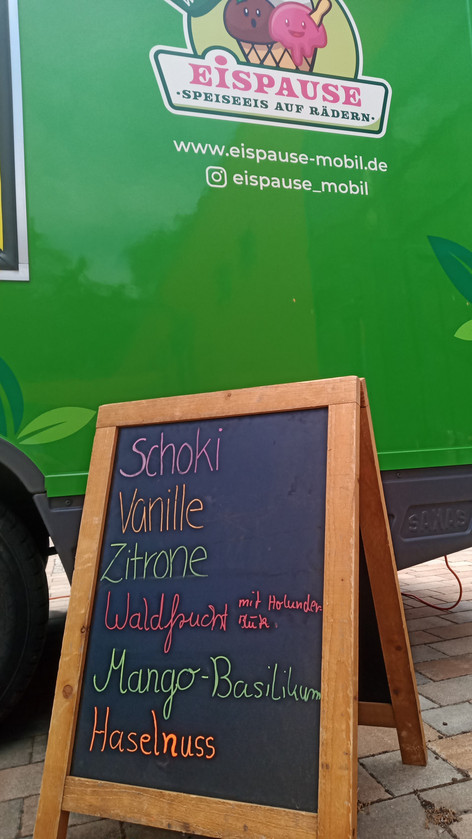 EiSPAUSE
·SPEISEEIS AUF RÄDERN·
www.eispause-mobil.de
eispause_mobil
Schoki
Vanille
Zitrone
Waldfrucht mit Holunder-
Mango-Basilikum
Haselnuss